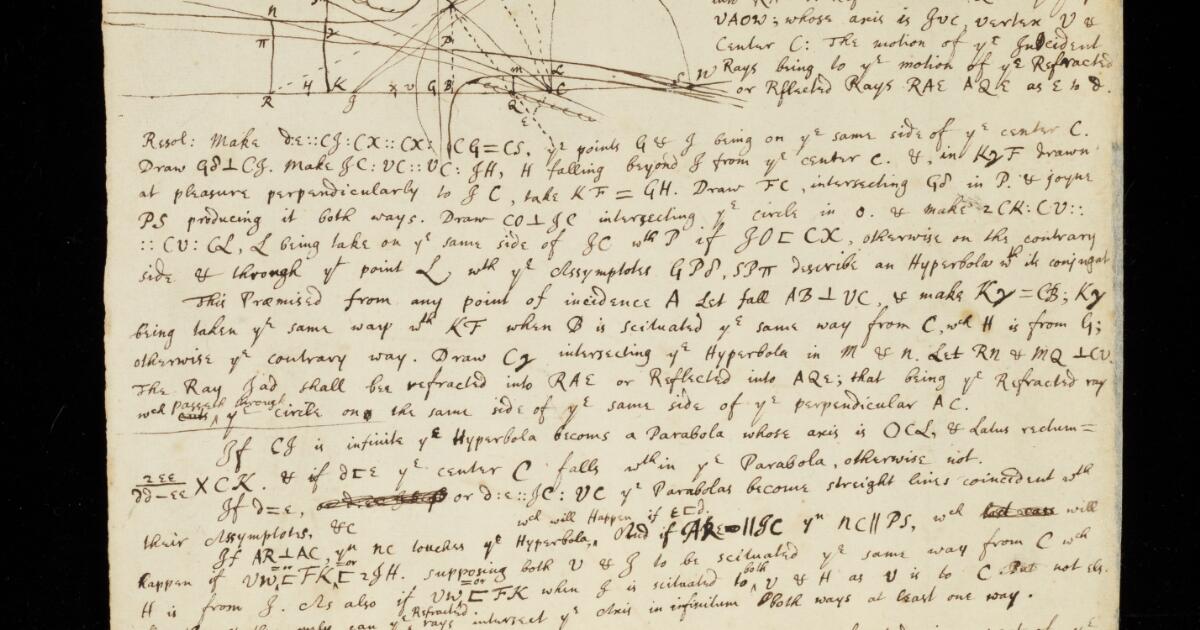 VAOW; whose axis is JVC, vertex V &
Center C: The motion of yᵉ Incident
Rays being to yᵉ motion of yᵉ Refracted
or Reflected Rays RAE AQE as ε to d.
Resol: Make d:ε::CJ:CX::CX: CG=CS, yᵉ points G & J being on yᵉ same side of yᵉ center C.
Draw Gδ⊥CJ. Make JC:VC::VC:JH, H falling beyond J from yᵉ center C. &, in KγF drawn
at pleasure perpendicularly to JC, take KF = GH. Draw FC, intersecting Gδ in P. & joyne
PS producing it both ways. Draw CO⊥JC intersecting yᵉ circle in O. & make 2CK:CV::
::CV:CL, L being take on yᵉ same side of JC wᵗʰ P if JO⊏CX, otherwise on the contrary
side & through yᵗ point L, wᵗʰ yᵉ Assymptotes GPδ, SPπ describe an Hyperbola wᵗʰ its conjugat
This Præmised from any point of incidence A Let fall AB⊥VC, & make Kγ=CB; Kγ
being taken yᵉ same way wᵗʰ KF when B is scituated yᵉ same way from C, wᶜʰ H is from G;
otherwise yᵉ contrary way. Draw Cγ intersecting yᵉ Hyperbola in M & n. Let Rn & MQ ⊥CV.
The Ray Jad, shall bee refracted into RAE or Reflected into AQE; that being yᵉ Refracted ray
wᶜʰ passeth through yᵉ circle on the same side of yᵉ same side of yᵉ perpendicular AC.
If CJ is infinite yᵉ Hyperbola becoms a Parabola whose axis is OCL, & Latus rectum=
2εε/dd-εε × CK. & if d⊏ε yᵉ center C falls wᵗʰin yᵉ Parabola, otherwise not.
If d=ε, or d:ε::JC:VC yᵉ Parabolas become streight lines coincident wᵗʰ
their Assymptotes, &c
wᶜʰ will Happen if ε⊏d.
If AR⊥AC, yⁿ nC touches yᵉ Hyperbola, And if ARE∥JC yⁿ nC∥PS, wᶜʰ will
happen if VW ⊏ FK ⊏ 2JH. supposing both V & J to be scituated yᵉ same way from C wᶜʰ
H is from J. As also if VW ⊏ FK when J is scituated to both V & H as V is to C But not els.
Refracted
rays intersect yᵉ Axis in infinitum both ways at least one way.